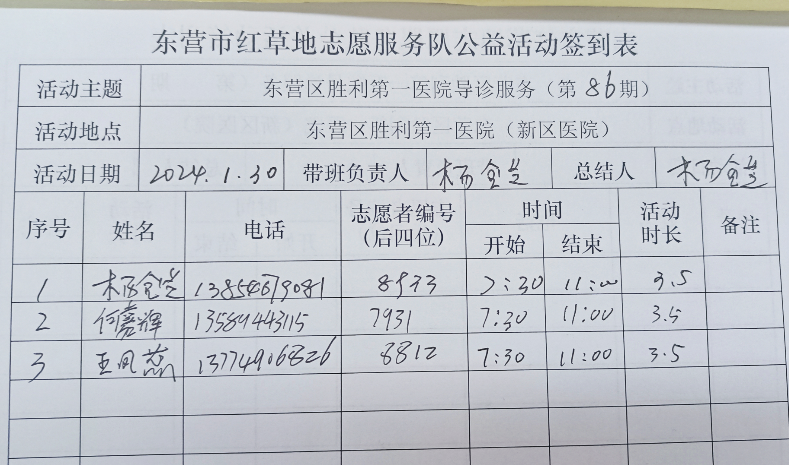 东营市红草地志愿服务队公益活动签到表
活动主题 东营区胜利第一医院导诊服务（第86期）
活动地点 东营区胜利第一医院（新区医院）
活动日期 2024.1.30 带班负责人 杨金芝 总结人 杨金芝
序号 姓名 电话 志愿者编号（后四位） 时间 开始 结束 活动时长 备注
1 杨金芝 13854679081 8933 7:30 11:00 3.5
2 何嘉辉 13589443115 7931 7:30 11:00 3.5
3 王凤蕊 13774906826 8812 7:30 11:00 3.5